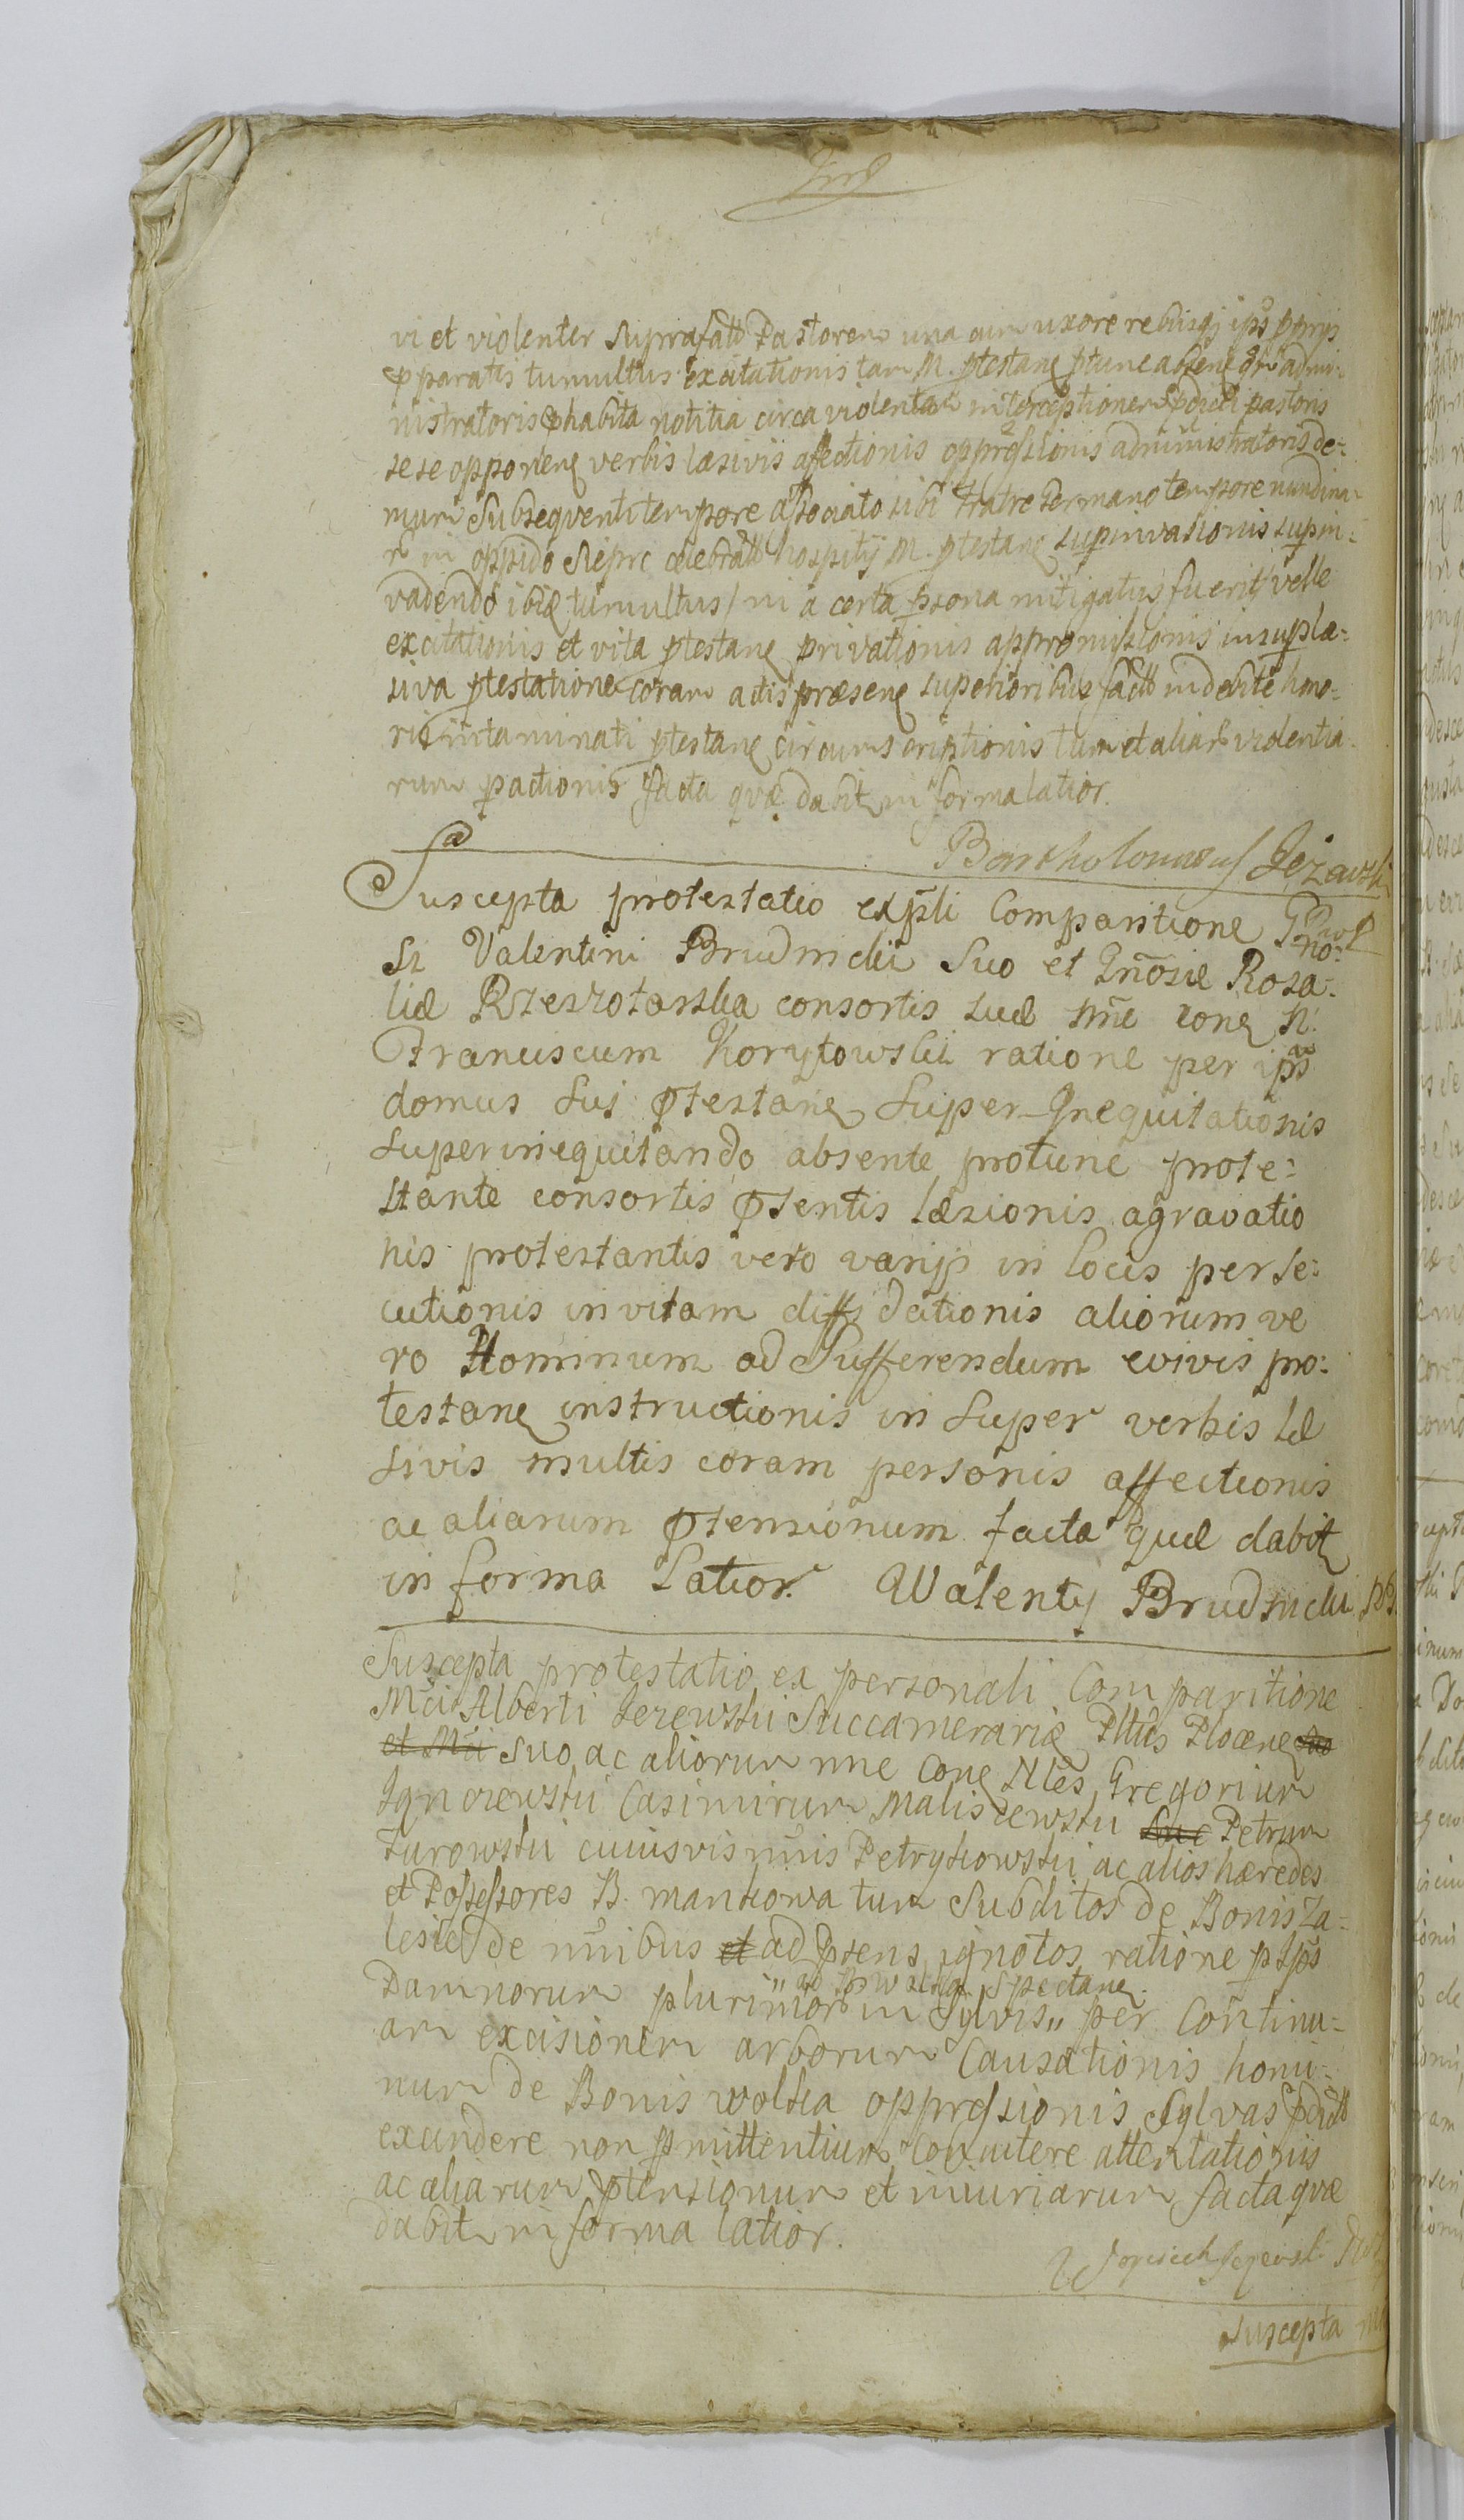 vi et violenter suprafatt Pastorem una cum uxore rebusq ips pprijs
pparatis tumultus excitationis tam M. ptestane ptunc absene administratoris
nistratoris habita notitia circa violentam interceptionem pdicti pastoris
sese opponene verbis læsivis affectionis oppressionis administratoris de=
mum subsequenti tempore associato sibi Fratre Germano tempore nundina=
r in oppido Sieprc celebratt hospitij M. ptestane superinvasionis supin=
vadendo ibiq tumultus ni a certa psona mitigatus fuerit velle
excitationis et vita ptestane privationis appromissionis insup læ=
siva ptestatione coram actis præsene superioribus facto indebite hono=
ri intaminati ptestane circumscriptionis tum et aliar violentia
rum pactionis facta quæ dabit in forma latior.
Bartholomæus Jezewski
Suscepta protestatio expli Comparitione G no=
si Valentini Brudnicki Suo et Gnosæ Rosa=
liæ Rzeszotarska consortis suæ nne cone N.
Franciscum Korytowski ratione per ips
domus sui ptestane Super Inequitationis
superinequitando absente protunc prote=
stante consortis ptentis læsionis agravatio
nis protestantis vero varijs in locis perse=
cutionis in vitam diffidationis aliorum ve
ro Hominum ad Sufferendum evivis pro=
testane instructionis in super verbis læ
sivis multis coram personis affectionis
ac aliarum ptensionum facta quæ dabit
in forma Latior. Walenty Brudnicki
Suscepta protestatio ex personali Comparitione
Mci Alberti Jezewski Succamerarie Pltus Plocene
et Mci suo ac aliorum nne cone Nles Gregorium
Casimirum Maliszewski Petrum
Turowski cuiusvis nnis Petrykowski ac alios hæredes
et Possessores B. mankowa tum Subditos de Bonis Za=
lesie de nnibus et ad psens ignotos ratione p ipos
spectane
Damnorum plurimor in Sylvis per Continu=
am excisionem arborum Causationis homi=
num de Bonis wolska oppressionis Sylvas pdict
excindere non pmittentium Concutere attentationis
ac aliarum ptensionum et iniuriarum facta quæ
dabit in forma latior.
Woyciech Jezewski
Suscepta